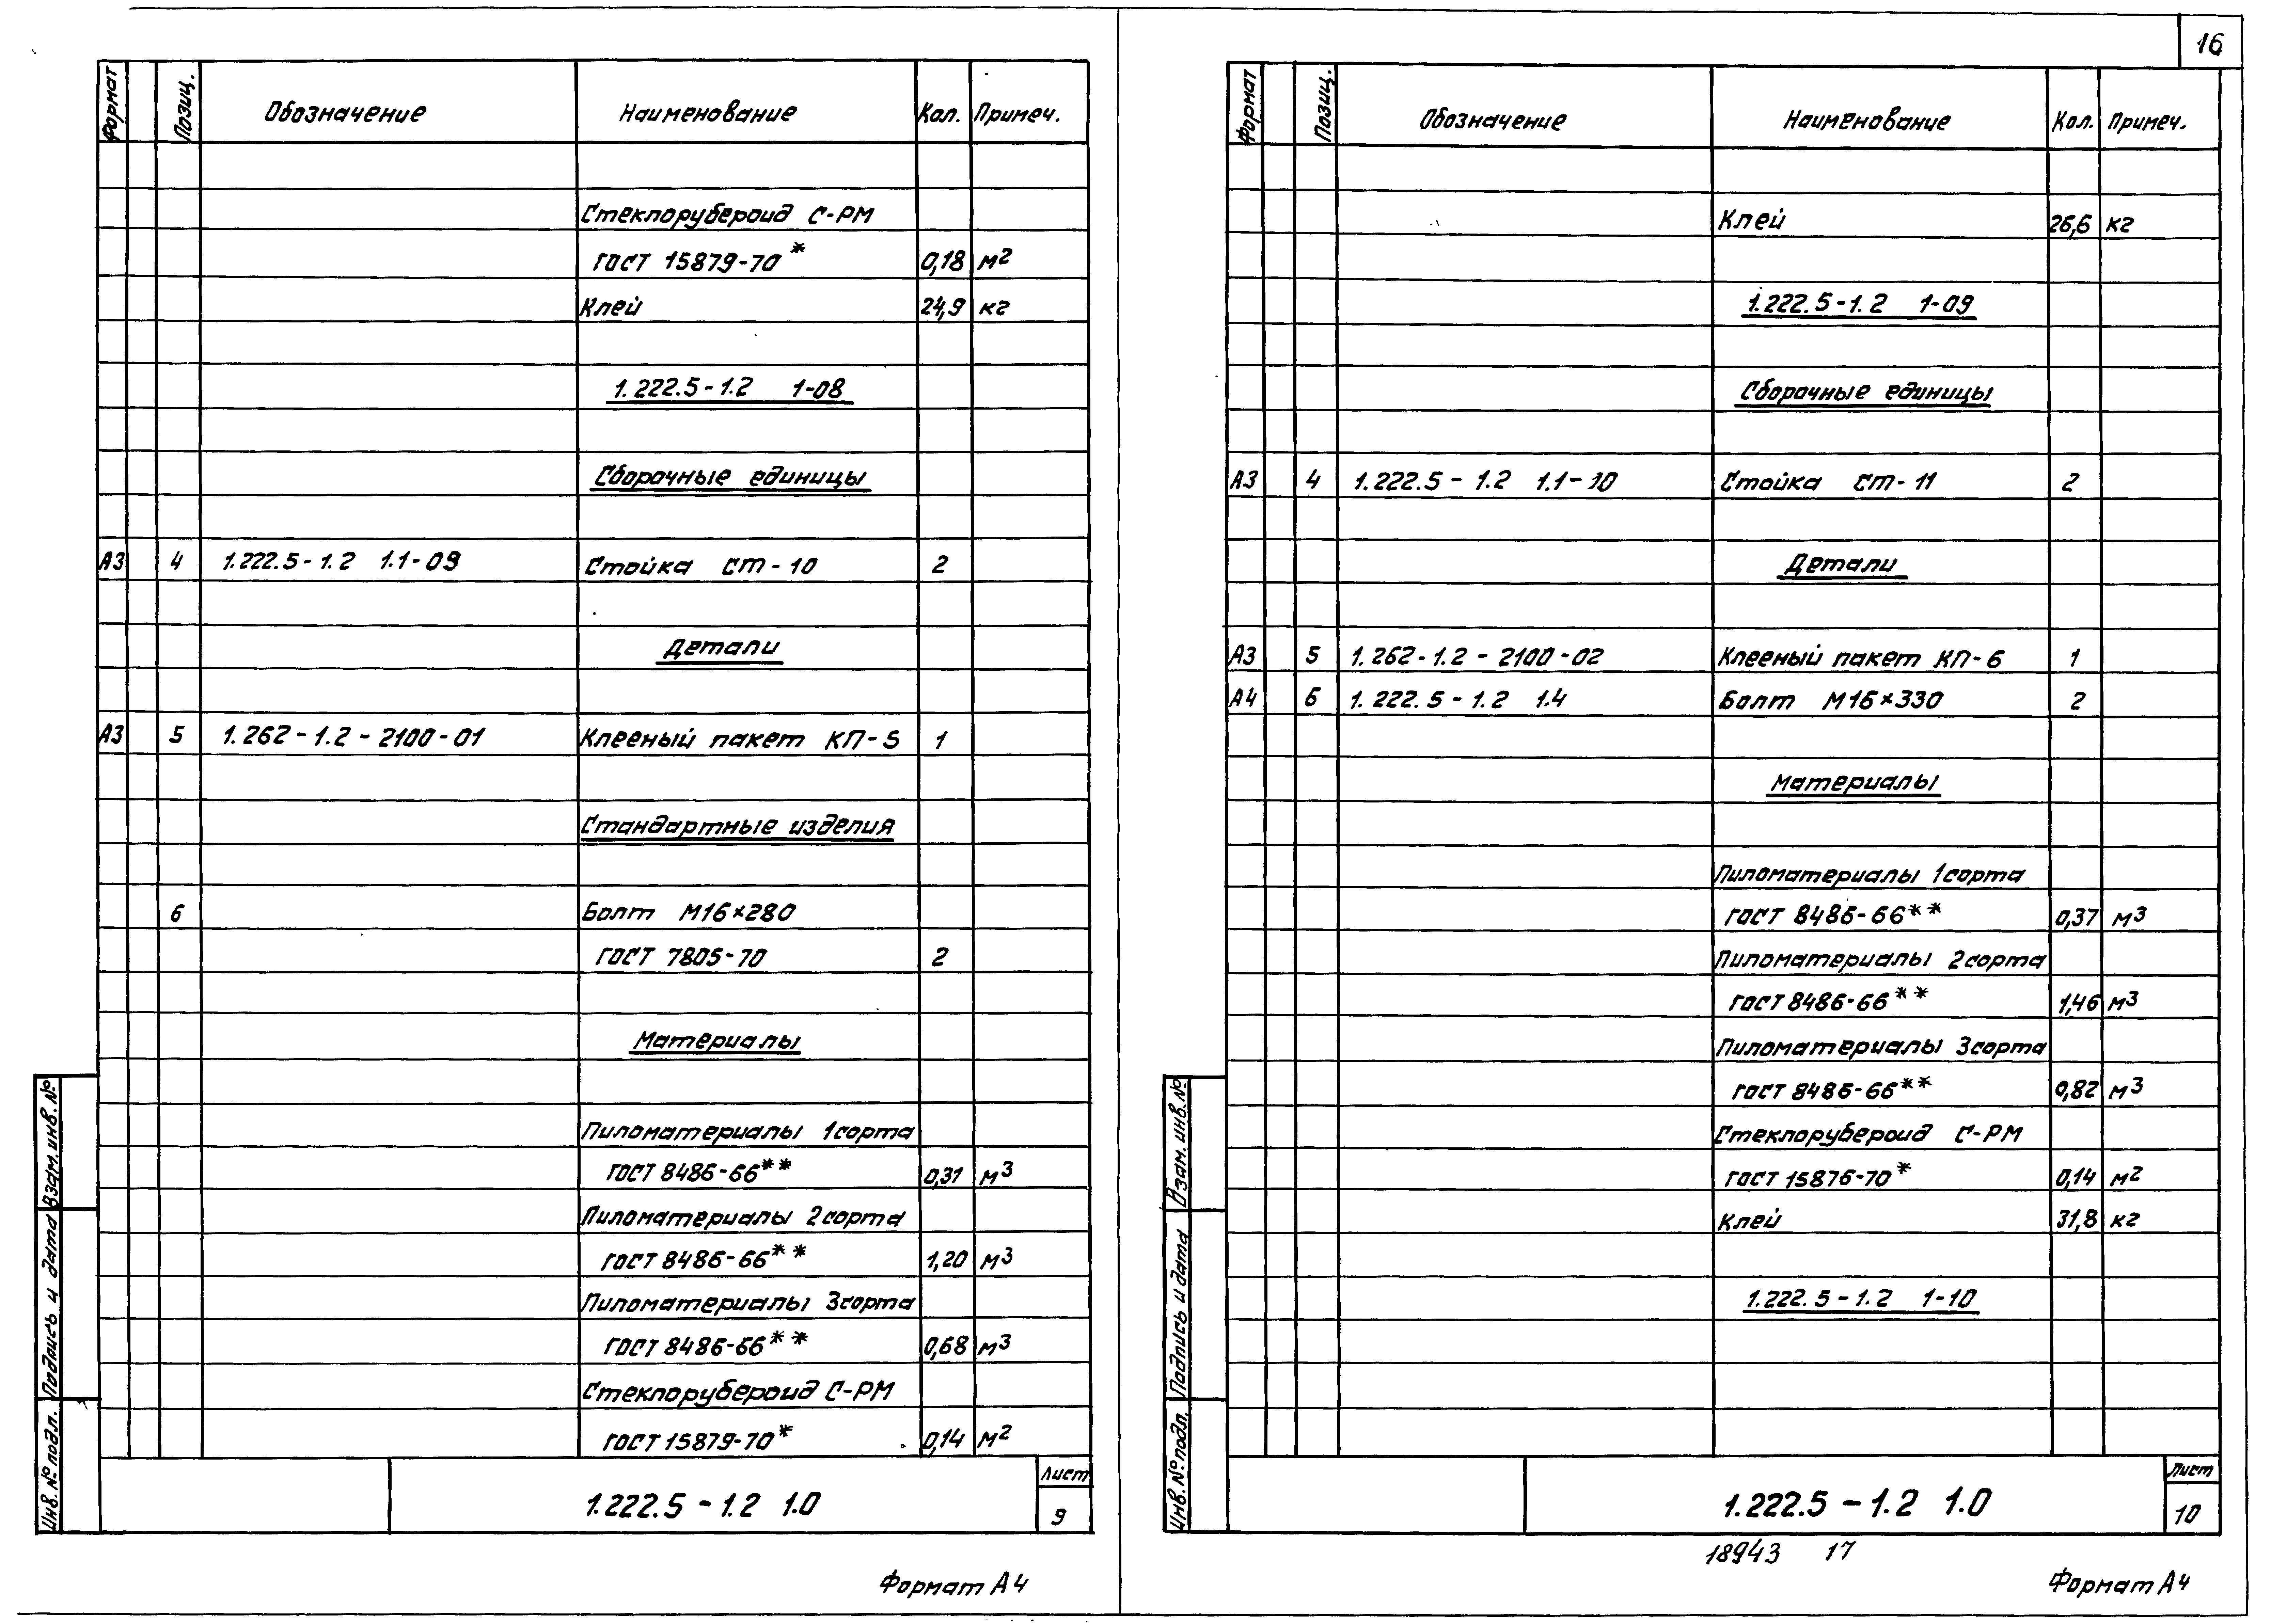 16
Формат Позиц. Обозначение Наименование Кол. Примеч.
Стеклорубероид С-РМ
ГОСТ 15879-70* 0,18 м2
Клей 24,9 кг
1.222.5-1.2 1-08
Сборочные единицы
А3 4 1.222.5-1.2 1.1-09 Стойка СТ-10 2
Детали
А3 5 1.262-1.2-2100-01 Клееный пакет КП-5 1
Стандартные изделия
6 Болт М16×280
ГОСТ 7805-70 2
Материалы
Пиломатериалы 1сорта
ГОСТ 8486-66** 0,31 м3
Пиломатериалы 2сорта
ГОСТ 8486-66** 1,20 м3
Пиломатериалы 3сорта
ГОСТ 8486-66** 0,68 м3
Стеклорубероид С-РМ
ГОСТ 15879-70* 0,14 м2
Взам. инв. №
Подпись и дата
Инв. № подл.
1.222.5-1.2 1.0
Лист
9
Формат А4
Формат Позиц. Обозначение Наименование Кол. Примеч.
Клей 26,6 кг
1.222.5-1.2 1-09
Сборочные единицы
А3 4 1.222.5-1.2 1.1-10 Стойка СТ-11 2
Детали
А3 5 1.262-1.2-2100-02 Клееный пакет КП-6 1
А4 6 1.222.5-1.2 1.4 Болт М16×330 2
Материалы
Пиломатериалы 1сорта
ГОСТ 8486-66** 0,37 м3
Пиломатериалы 2сорта
ГОСТ 8486-66** 1,46 м3
Пиломатериалы 3сорта
ГОСТ 8486-66** 0,82 м3
Стеклорубероид С-РМ
ГОСТ 15876-70* 0,14 м2
Клей 31,8 кг
1.222.5-1.2 1-10
Взам. инв. №
Подпись и дата
Инв. № подл.
1.222.5-1.2 1.0
Лист
10
18943 17
Формат А4